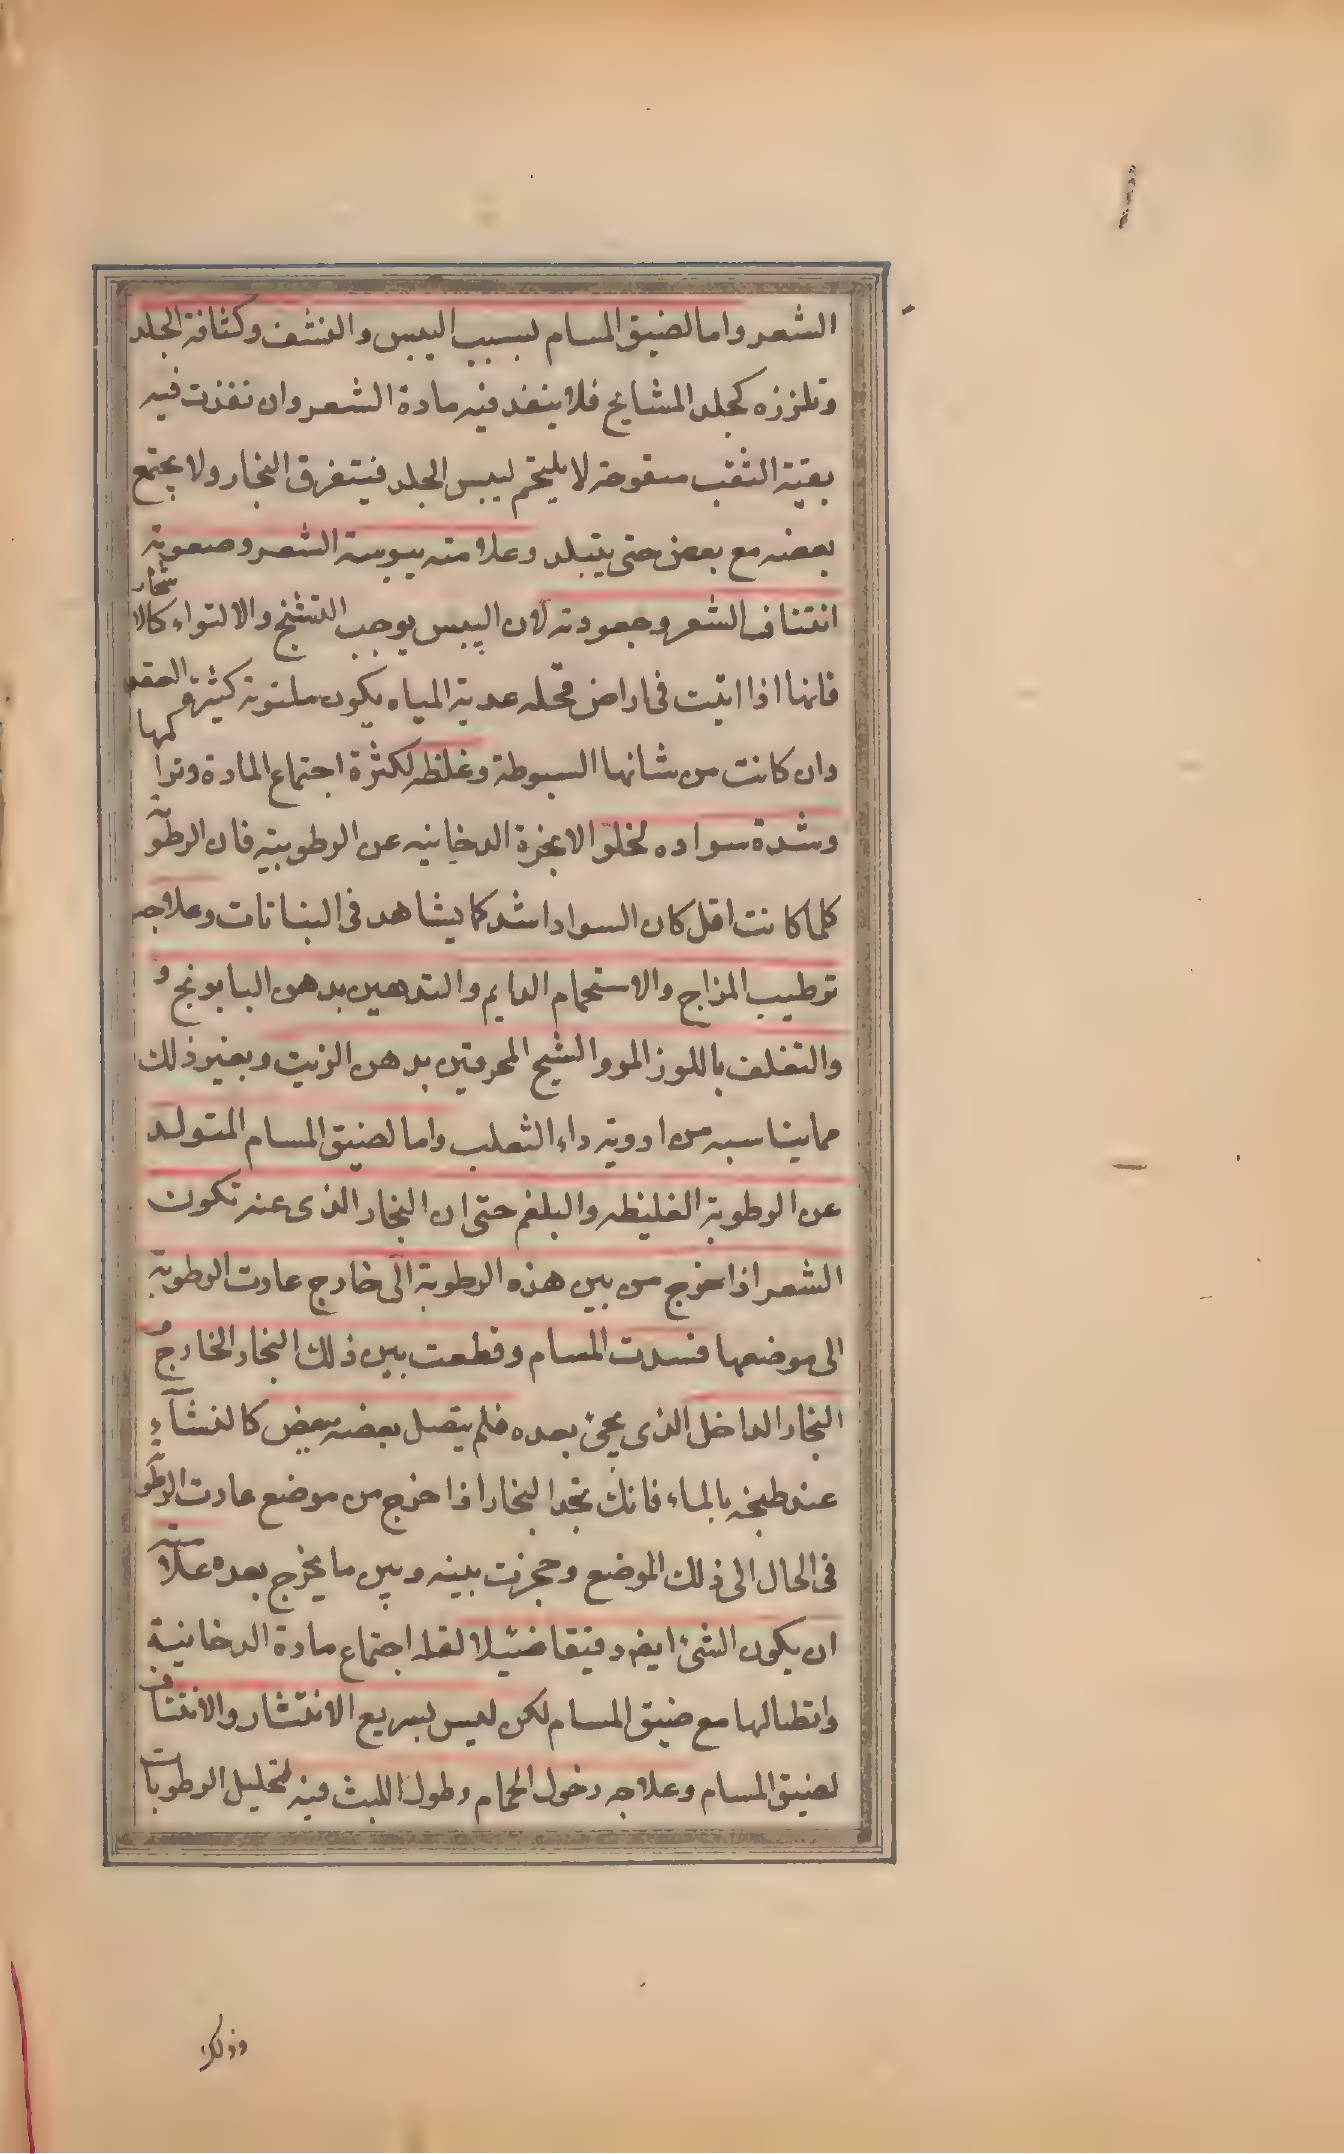 الشعر واما لضيق المسام لسبب اليبس والنشف وكثافة الجلد
وتلززه كجلد المشايخ فلا ينفذ فيه مادة الشعر وان نفذت فيه
بقية الثقب مفتوحة لا يلتحم ليبس الجلد فيتفرق البخار ولا يجتمع
بعضه مع بعض حتى يتبلد وعلامته يبوسة الشعر وصعوبة
انتتاف الشعر وجعودته لان اليبس يوجب التشنج والالتواء كالاشجار
فانها اذا انبت فى اراض قحله عديمة المياه يكون ملتوية كثيرة العقد
وان كانت من شانها السبوطة وغلظه لكثرة اجتماع المادة وتراكمها
وشدة سواده لخلو الابخرة الدخانيه عن الرطوبية فان الرطوبة
كلما كانت اقل كان السواد اشد كما يشاهد فى النباتات وعلاجه
ترطيب المزاج والاستحمام الدايم والتدهين بدهن البابونج و
والتغلف باللوز المر والشيح المحرقين بدهن الزيت وبغير ذلك
مما يناسبه من ادوية داء الثعلب واما لضيق المسام المتولد
عن الرطوبة الغليظه والبلغم حتى ان البخار الذى عنه تكون
الشعر اذا خرج من بين هذه الرطوبة الى خارج عادت الرطوبة
الى موضعها فسدت المسام وقطعت بين ذلك البخار الخارج و
البخار الداخل الذى يجئ بعده فلم يتصل بعضه ببعض كالنشآء
عند طبخه بالماء فانك تجد البخار اذا خرج من موضع عادت الرطوبة
فى الحال الى ذلك الموضع وحجزت بينه وبين ما يخرج بعده علامته
ان يكون الشئ ايضا دقيقا ضئيلا لقله اجتماع مادة الدخانية
وانطبالها مع ضيق المسام لكن ليس بسريع الانتشار والانتتاف
لضيق المسام وعلاجه دخول الحمام وطول اللبث فيه لتحليل الرطوبات
وذلك